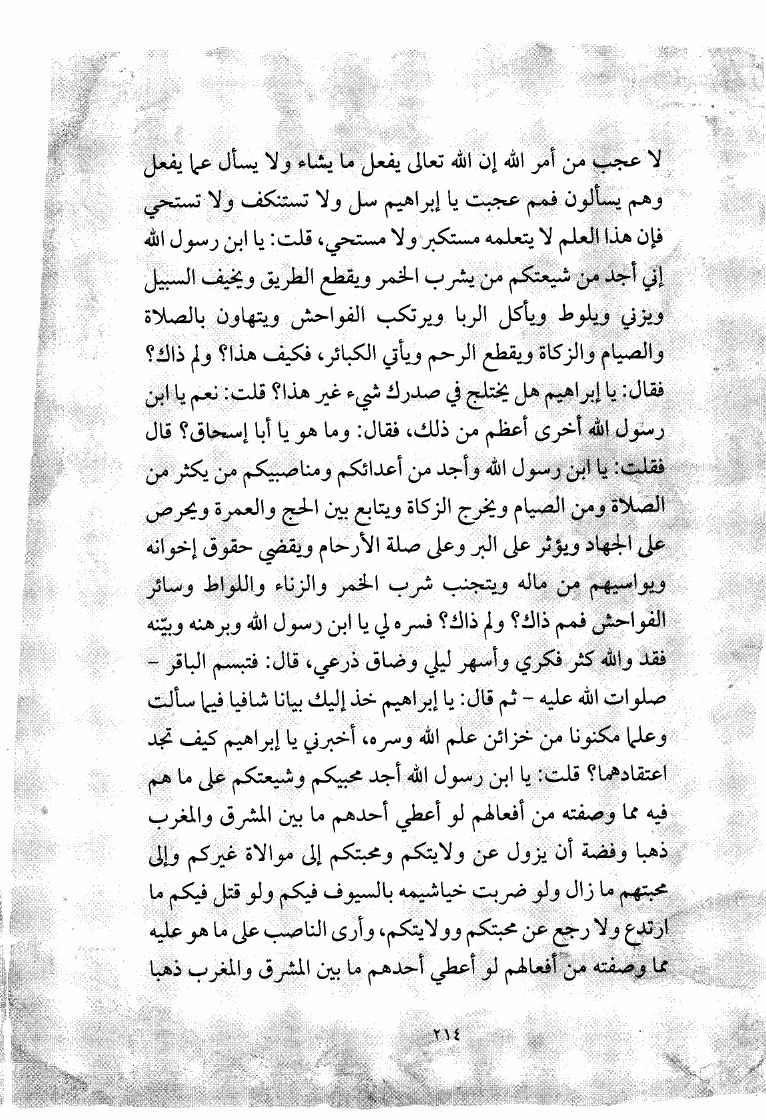 لا عجب من أمر الله إن الله تعالى يفعل ما يشاء ولا يسأل عما يفعل
وهم يسألون فمم عجبت يا إبراهيم سل ولا تستنكف ولا تستحي
فإن هذا العلم لا يتعلمه مستكبر ولا مستحي، قلت: يا ابن رسول الله
إني أجد من شيعتكم من يشرب الخمر ويقطع الطريق ويخيف السبيل
ويزني ويلوط ويأكل الربا ويرتكب الفواحش ويتهاون بالصلاة
والصيام والزكاة ويقطع الرحم ويأتي الكبائر، فكيف هذا؟ ولم ذاك؟
فقال: يا إبراهيم هل يختلج في صدرك شيء غير هذا؟ قلت: نعم يا ابن
رسول الله أخرى أعظم من ذلك، فقال: وما هو يا أبا إسحاق؟ قال
فقلت: يا ابن رسول الله وأجد من أعدائكم ومناصبيكم من يكثر من
الصلاة ومن الصيام ويخرج الزكاة ويتابع بين الحج والعمرة ويحرص
على الجهاد ويؤثر على البر وعلى صلة الأرحام ويقضي حقوق إخوانه
ويواسيهم من ماله ويتجنب شرب الخمر والزناء واللواط وسائر
الفواحش فمم ذاك؟ ولم ذاك؟ فسره لي يا ابن رسول الله وبرهنه وبيّنه
فقد والله كثر فكري وأسهر ليلي وضاق ذرعي، قال: فتبسم الباقر -
صلوات الله عليه - ثم قال: يا إبراهيم خذ إليك بيانا شافيا فيما سألت
وعلما مكنونا من خزائن علم الله وسره، أخبرني يا إبراهيم كيف تجد
اعتقادهما؟ قلت: يا ابن رسول الله أجد محبيكم وشيعتكم على ما هم
فيه مما وصفته من أفعالهم لو أعطي أحدهم ما بين المشرق والمغرب
ذهبا وفضة أن يزول عن ولايتكم ومحبتكم إلى موالاة غيركم وإلى
محبتهم ما زال ولو ضربت خياشيمه بالسيوف فيكم ولو قتل فيكم ما
ارتدع ولا رجع عن محبتكم وولايتكم، وأرى الناصب على ما هو عليه
مما وصفته من أفعالهم لو أعطي أحدهم ما بين المشرق والمغرب ذهبا
٢١٤